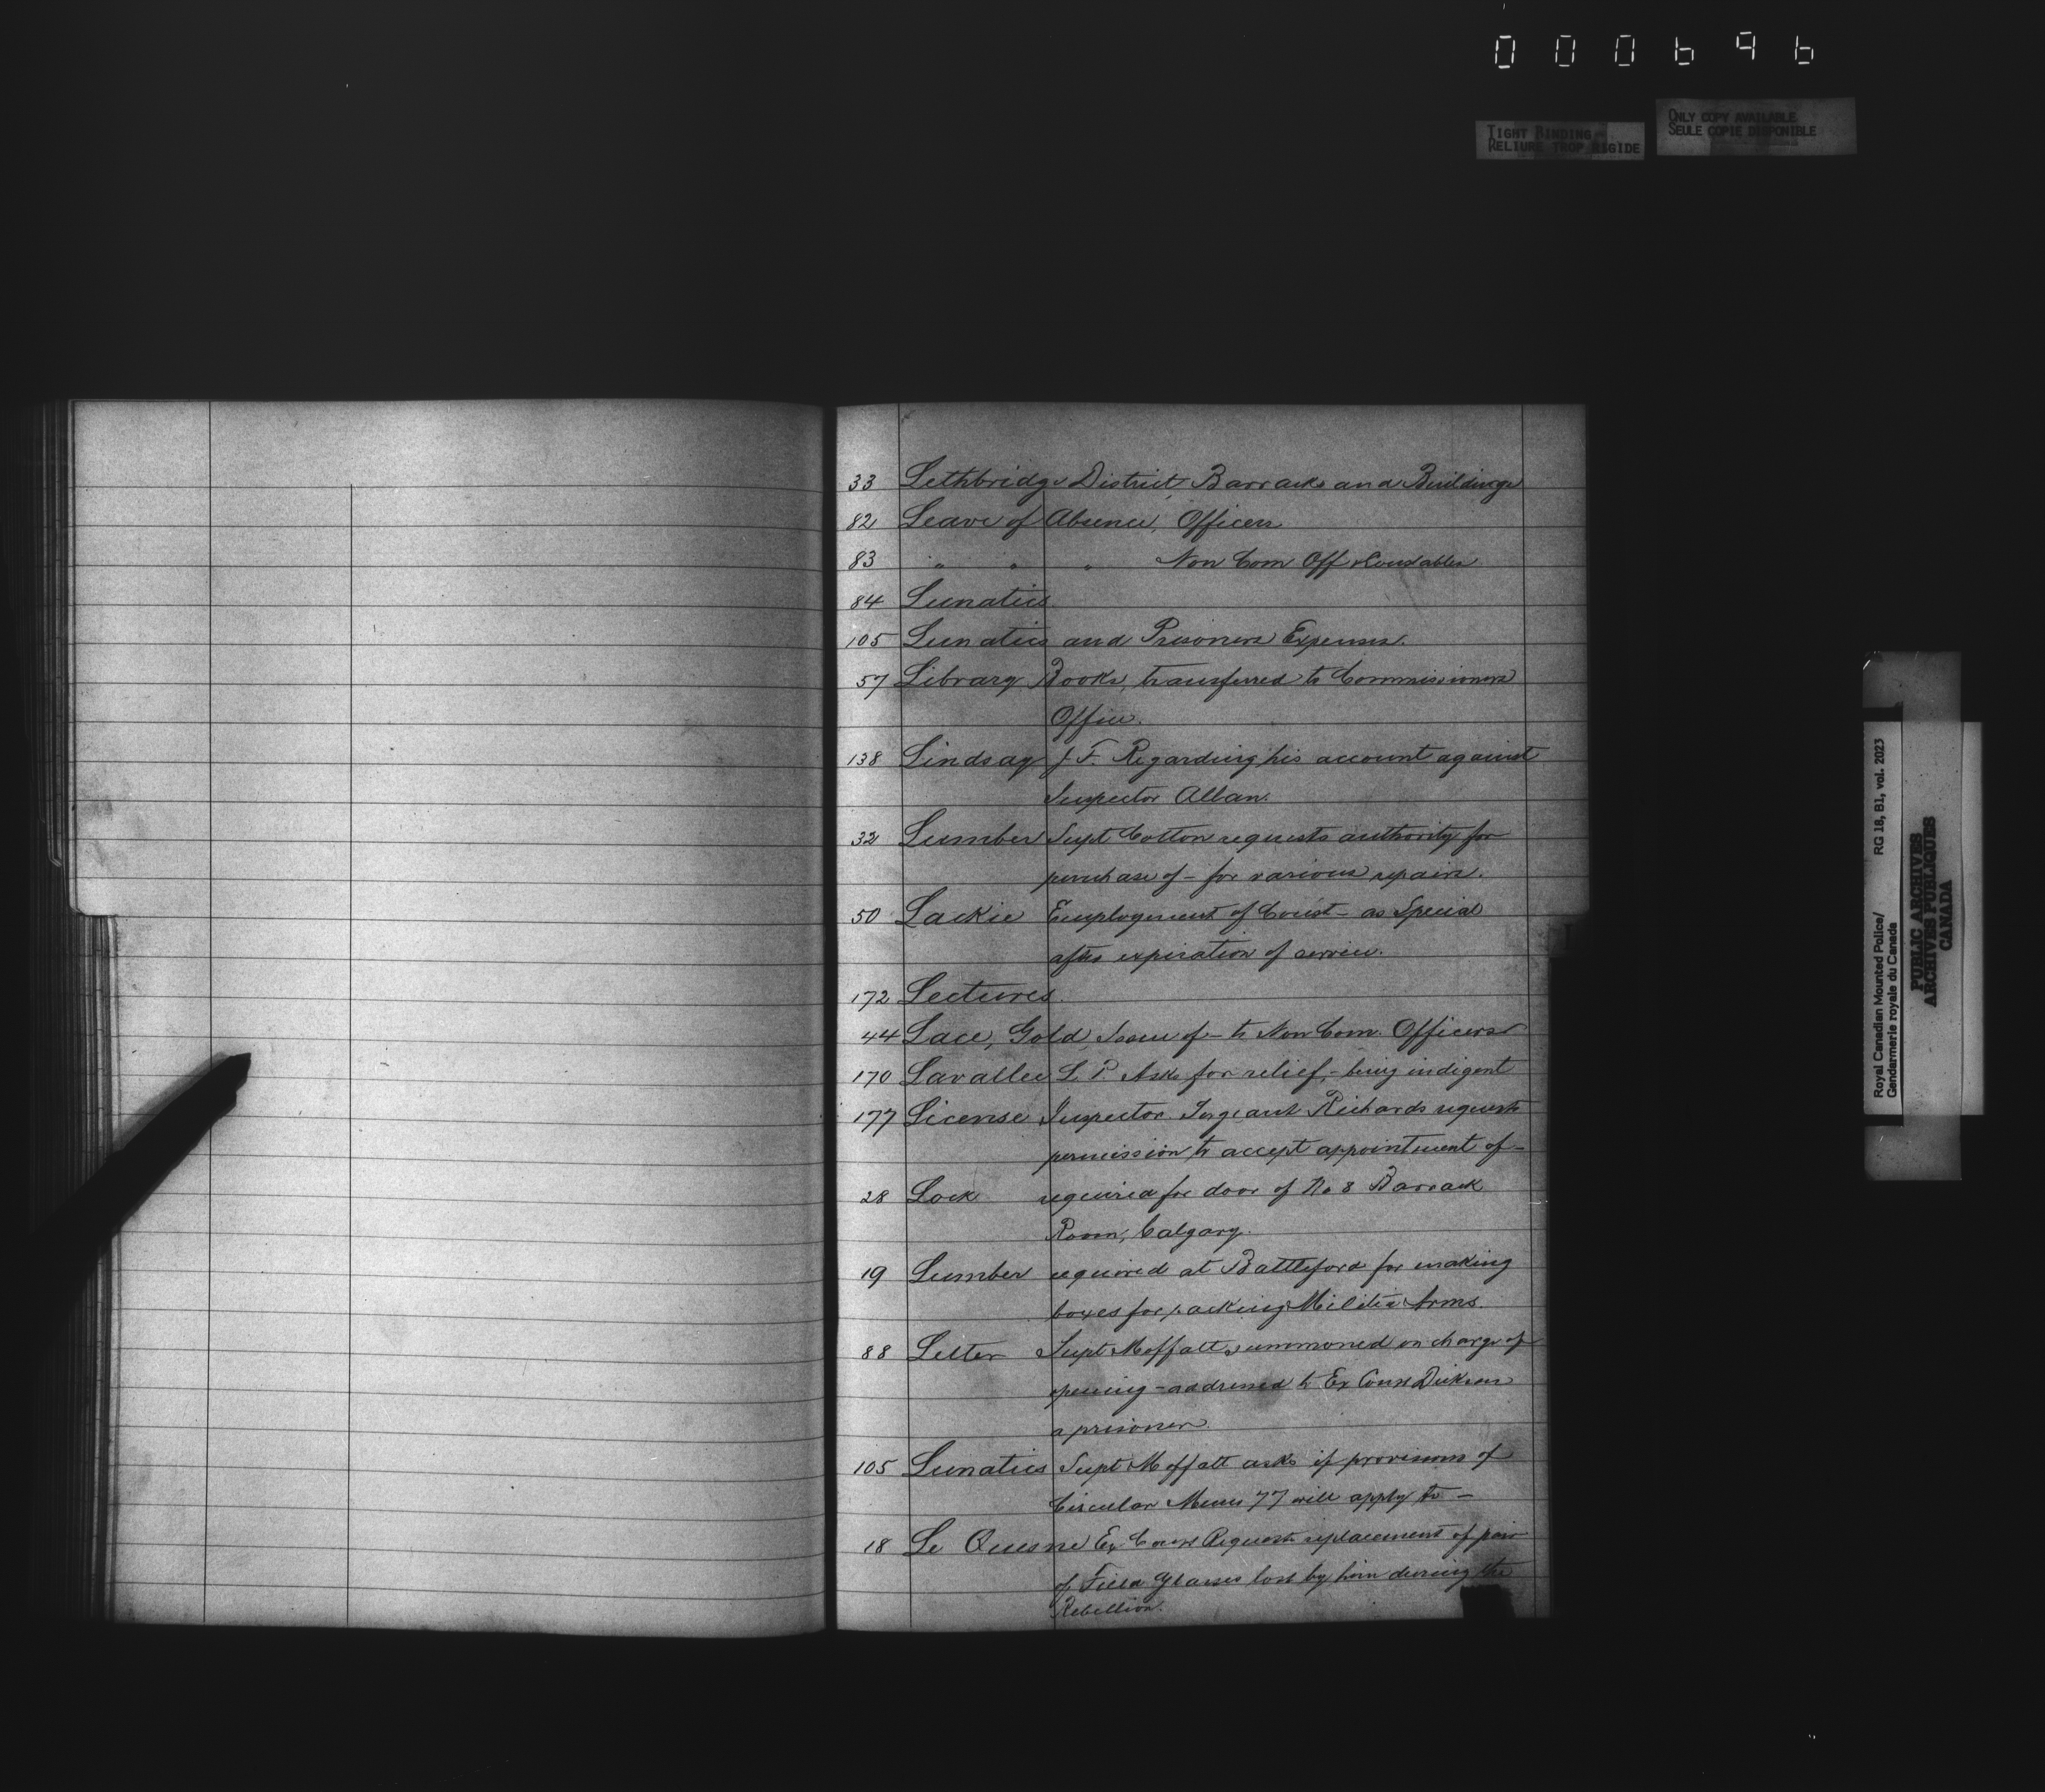 000696
TIGHT BINDING
RELIURE TROP RIGIDE
ONLY COPY AVAILABLE
SEULE COPIE DISPONIBLE
33 Lethbridge District, Barracks and Buildings
82 Leave of Absence, Officers
83 " " " Non Com Off & Constables
84 Lunatics
105 Lunatics and Prisoners Expenses.
57 Library Books, transferred to Commissioners
Office.
138 Lindsay J. F. Regarding his account against
Inspector Allan.
32 Lumber Supt Cotton requests authority for
purchase of - for various repairs.
50 Lackie Employment of Const - as Special
after expiration of service.
172 Lectures.
44 Lace, Gold, Issue of - to Non Com. Officers
170 Lavallee L. P. Asks for relief, - being indigent
177 License Inspector Sergeant Richards requests
permission to accept appointment of -
28 Lock required for door of No 8 Barrack
Room, Calgary.
19 Lumber required at Battleford for making
boxes for packing Militia Arms.
88 Letter Supt Moffatt summoned on charge of
opening - addressed to Ex Const Dickson
a prisoner.
105 Lunatics Supt Moffatt asks if provisions of
Circular Memo 77 will apply to -
18 Le Quesne Ex Const Requests replacement of pair
of Field Glasses lost by him during the
Rebellion.
Royal Canadian Mounted Police/ RG 18, B1, vol. 2023
Gendarmerie royale du Canada
PUBLIC ARCHIVES
ARCHIVES PUBLIQUES
CANADA